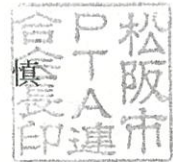 松阪市
PTA連
合会長印
慎